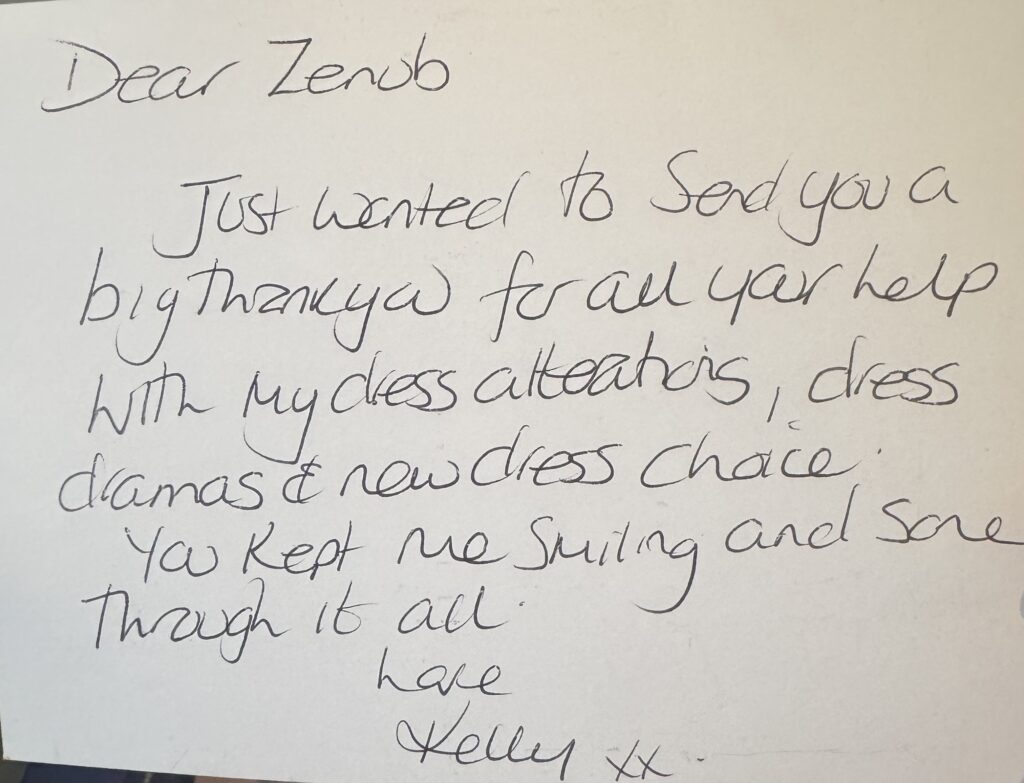 Dear Zenub
Just wanted to Send you a
big thankyou for all your help
with My dress alterations, dress
dramas & new dress choice.
You kept me Smiling and Sane
through it all.
Love
Kelly xx.